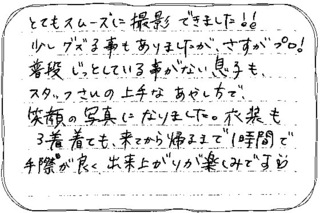 とてもスムーズに撮影できました!!
少しグズる事もありましたが、さすがプロ!
普段じっとしている事がない息子も、
スタッフさんの上手なあやし方で、
笑顔の写真になりました。衣装も
3着着ても、来てから帰るまで1時間で
手際が良く出来上がりが楽しみです